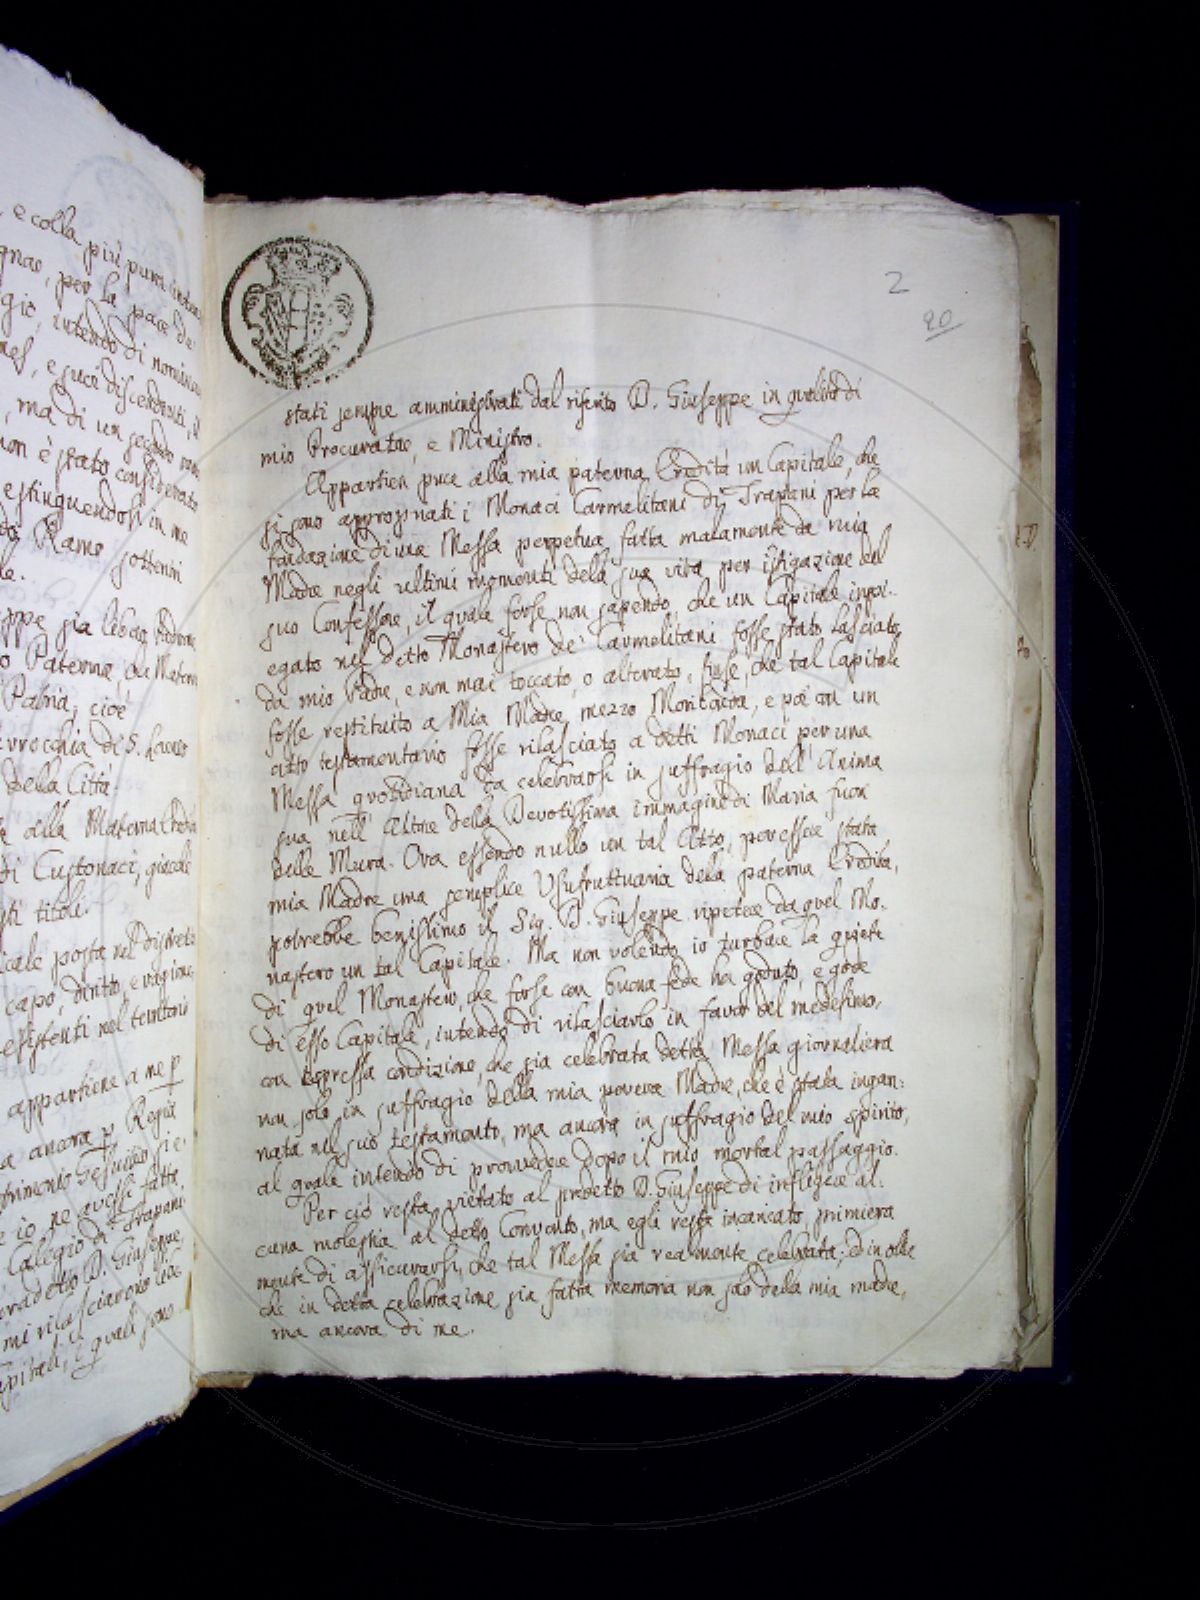 e colla più pura inten
gnae, per la pace de
gio, intendo di nominar
nel, e suoi discendenti, il
, ma di un secondo
non è stato considerato
estinguendosi in me
do Ramo sottenni
le.
ppe sia libero Padrone
o Paterna, che Materna
Patria, cioè
rrocchia di S. Lorenzo
della Città.
alla Materna Eredità
di Custonaci, giacchè
sti titoli.
icale posta nel distretto
capo, diritto, e ragione
esistenti nel territorio
appartiene a me p
a ancora p. Regia
io ne avessi fatta
Collegio di Trapani
predetto D. Giuseppe,
mi rilasciarono liberi
Capitali, e quali sono
2
20
stati sempre amministrati dal riferito D. Giuseppe in qualità di
mio Procuratore, e Ministro.
Appartien pure alla mia paterna Eredità un Capitale, che
si sono appropriati i Monaci Carmelitani di Trapani per la
fondazione di una Messa perpetua fatta malamente da mia
Madre negli ultimi momenti della sua vita per istigazione del
suo Confessore, il quale forse non sapendo, che un Capitale impi-
egato nel detto Monastero de' Carmelitani fosse stato lasciato
da mio Padre, e non mai toccato, o alterato, fece, che tal Capitale
fosse restituito a Mia Madre mezzo Moribonda, e poi con un
atto testamentario fosse rilasciato a detti Monaci per una
Messa quotidiana da celebrarsi in suffragio dell' Anima
sua nell' Altare della Devotissima immagine di Maria fuori
delle Mura. Ora essendo nullo un tal Atto, per essere stata
mia Madre una semplice Usufruttuaria della paterna Eredità,
potrebbe benissimo il Sig. D. Giuseppe ripetere da quel Mo-
nastero un tal Capitale. Ma non volendo io turbare la quiete
di quel Monastero, che forse con buona fede ha goduto, e gode
di esso Capitale, intendo di rilasciarlo in favor del medesimo,
con espressa condizione, che sia celebrata detta Messa giornaliera
non solo in suffragio della mia povera Madre, che è stata ingan-
nata nel suo testamento, ma ancora in suffragio del mio spirito,
al quale intendo di provvedere dopo il mio mortal passaggio.
Per ciò resta vietato al predetto D. Giuseppe di infligere al-
cuna molestia al detto Convento, ma egli resta incaricato primiera
mente di assicurarsi, che tal Messa sia realmente celebrata; ed in oltre
che in detta celebrazione sia fatta memoria non solo della mia madre,
ma ancora di me.